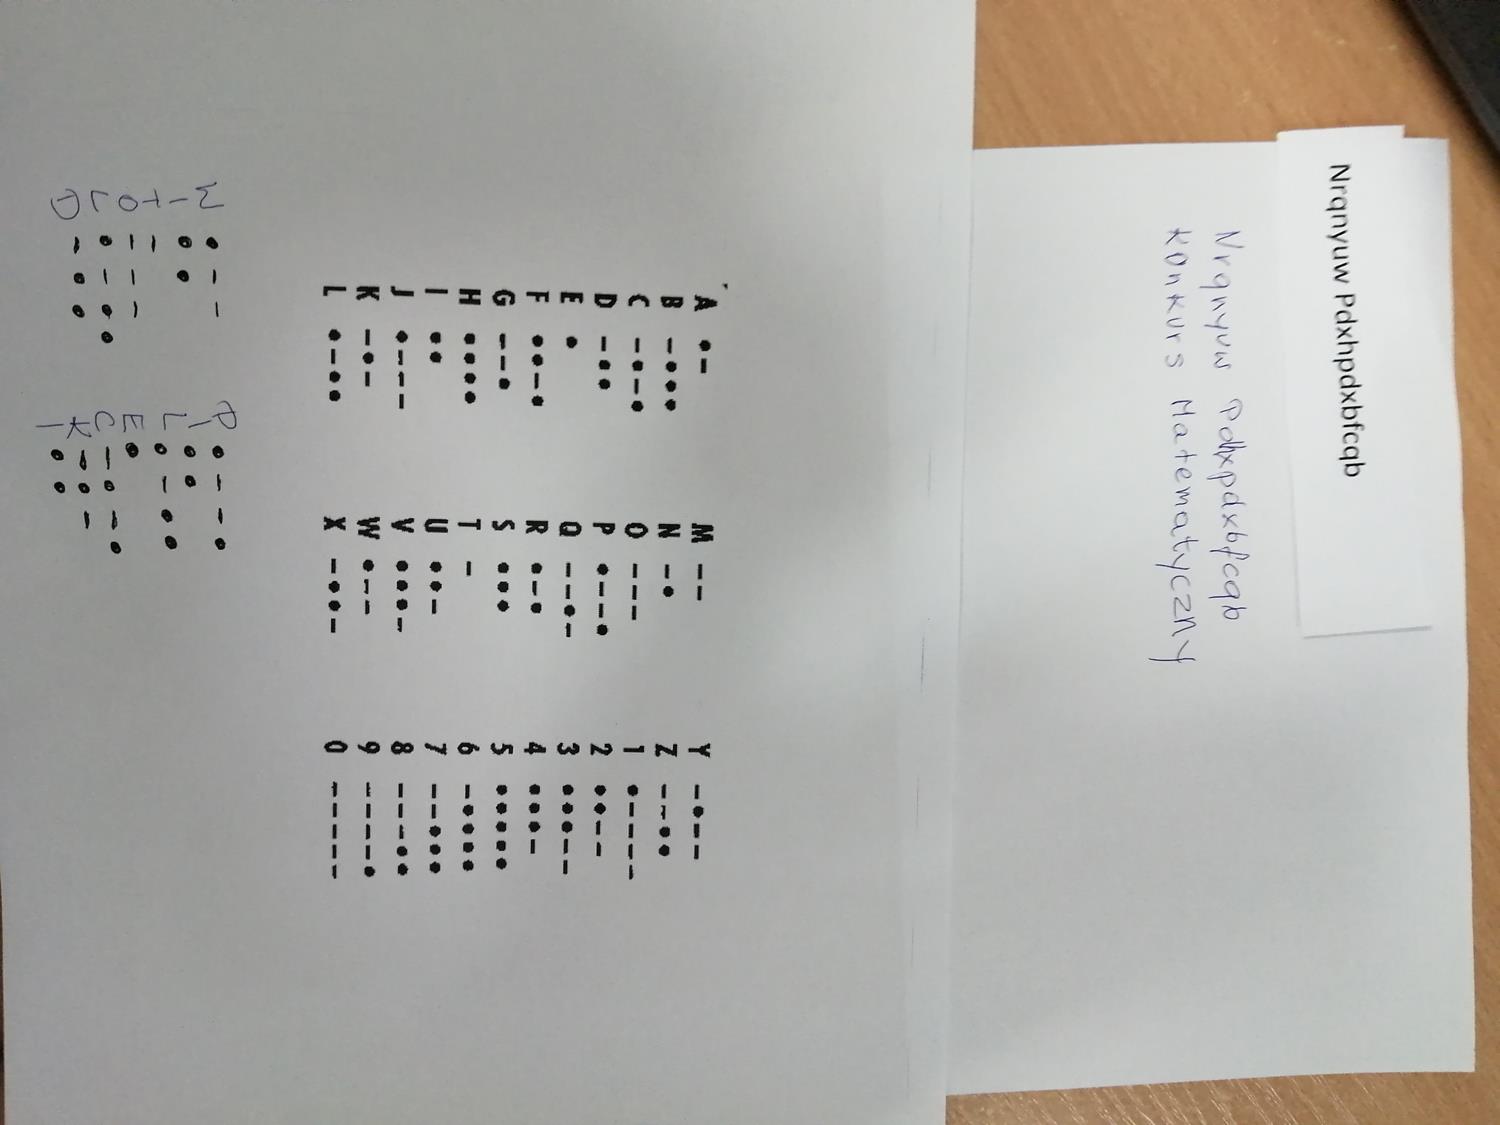 Nrqnyuw Pdxhpdxbfcqb
Nrqnyuw Pdhxpdxbfcqb
Konkurs Matematyczny
A •— M —— Y —•——
B —••• N —• Z ——••
C —•—• O ——— 1 •————
D —•• P •——• 2 ••——
E • Q ——•— 3 •••——
F ••—• R •—• 4 •••—
G ——• S ••• 5 •••••
H •••• T — 6 —••••
I •• U ••— 7 ——•••
J •——— V •••— 8 ———••
K —•— W •—— 9 ————•
L •—•• X —••— 0 —————
W •—— P •——•
I •• I ••
T — L •—••
O ——— E •
L •—•• C —•—•
D —•• K —•—
I ••